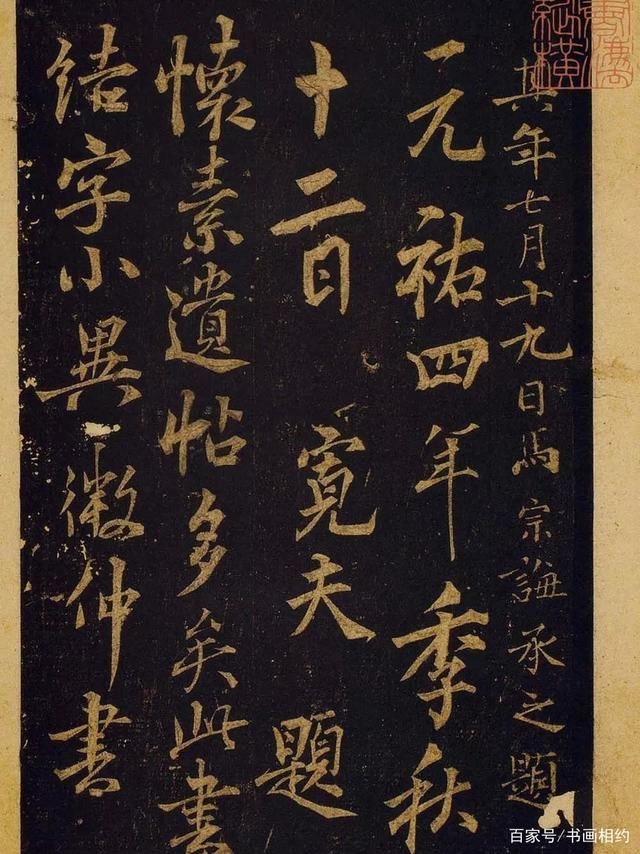 其年七月十九日馬宗誨承之題
元祐四年季秋
十二日 寬夫題
懷素遺帖多矣此書
结字小異微仲書
百家号/书画相约